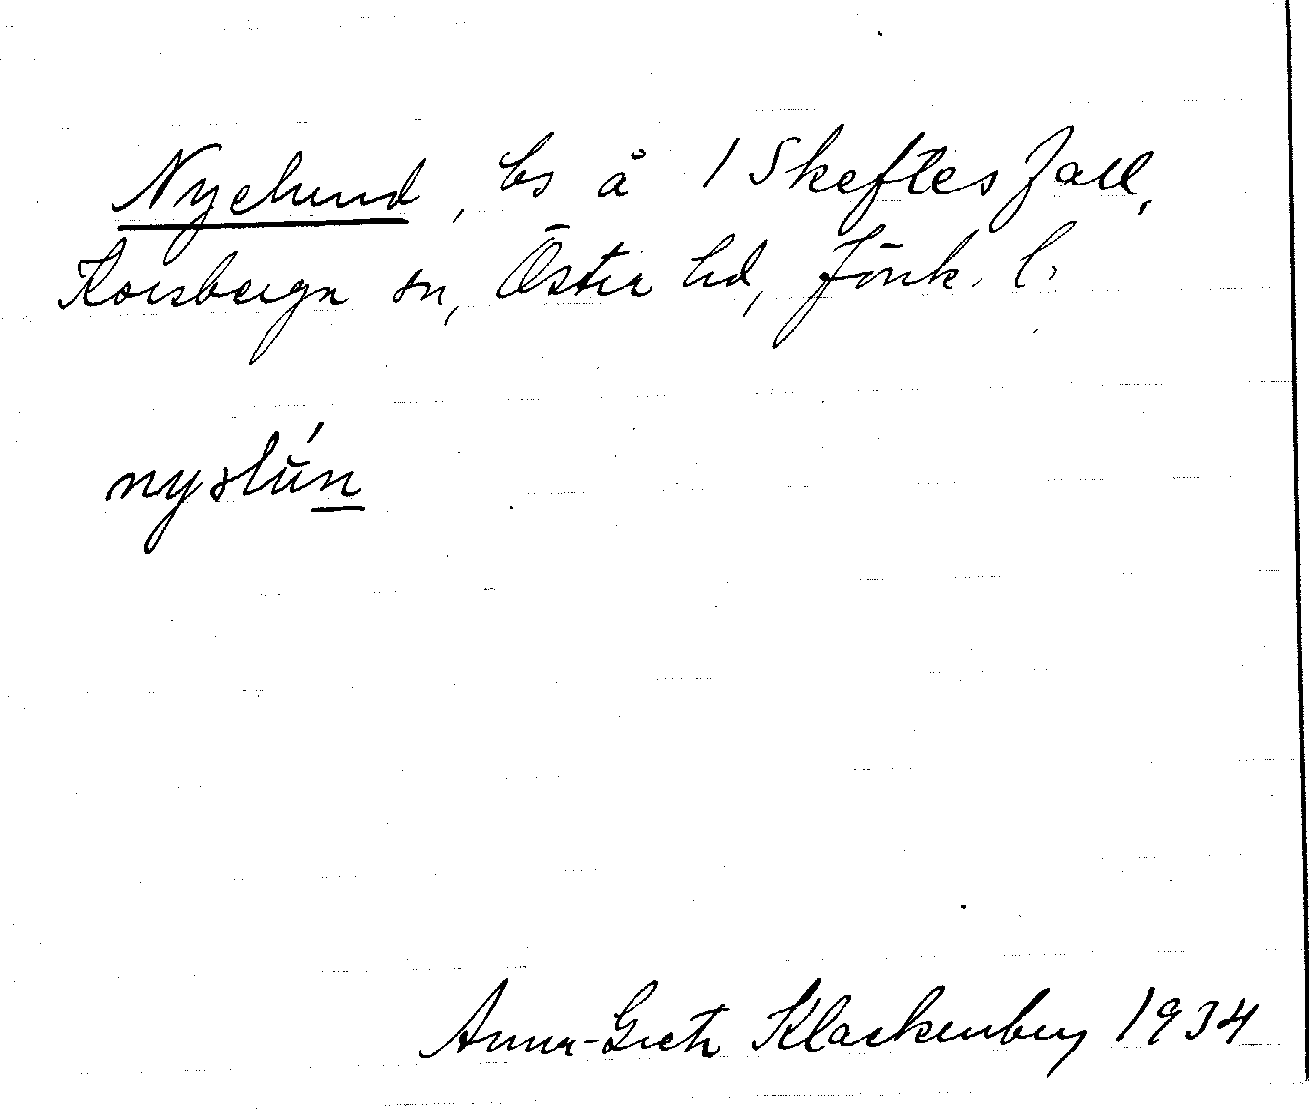 Nyelund, ls å 1 Skeftesfall,
Korsberga sn, Östra hd, Jönk. l.
nyəlún
Anna-Greta Klackenberg 1934